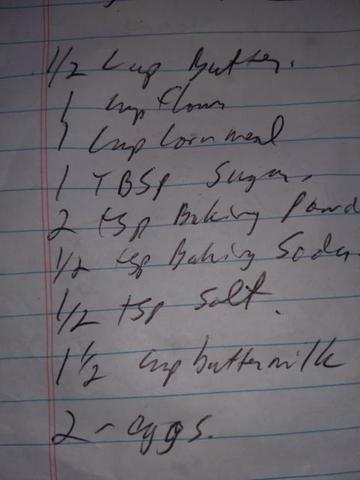 1/2 Cup Butter.
1 cup flour
1 Cup Corn meal
1 TBSP Sugar.
2 tsp Baking Powd
1/2 tsp Baking Soda.
1/2 tsp Salt.
1 1/2 cup buttermilk
2 - eggs.